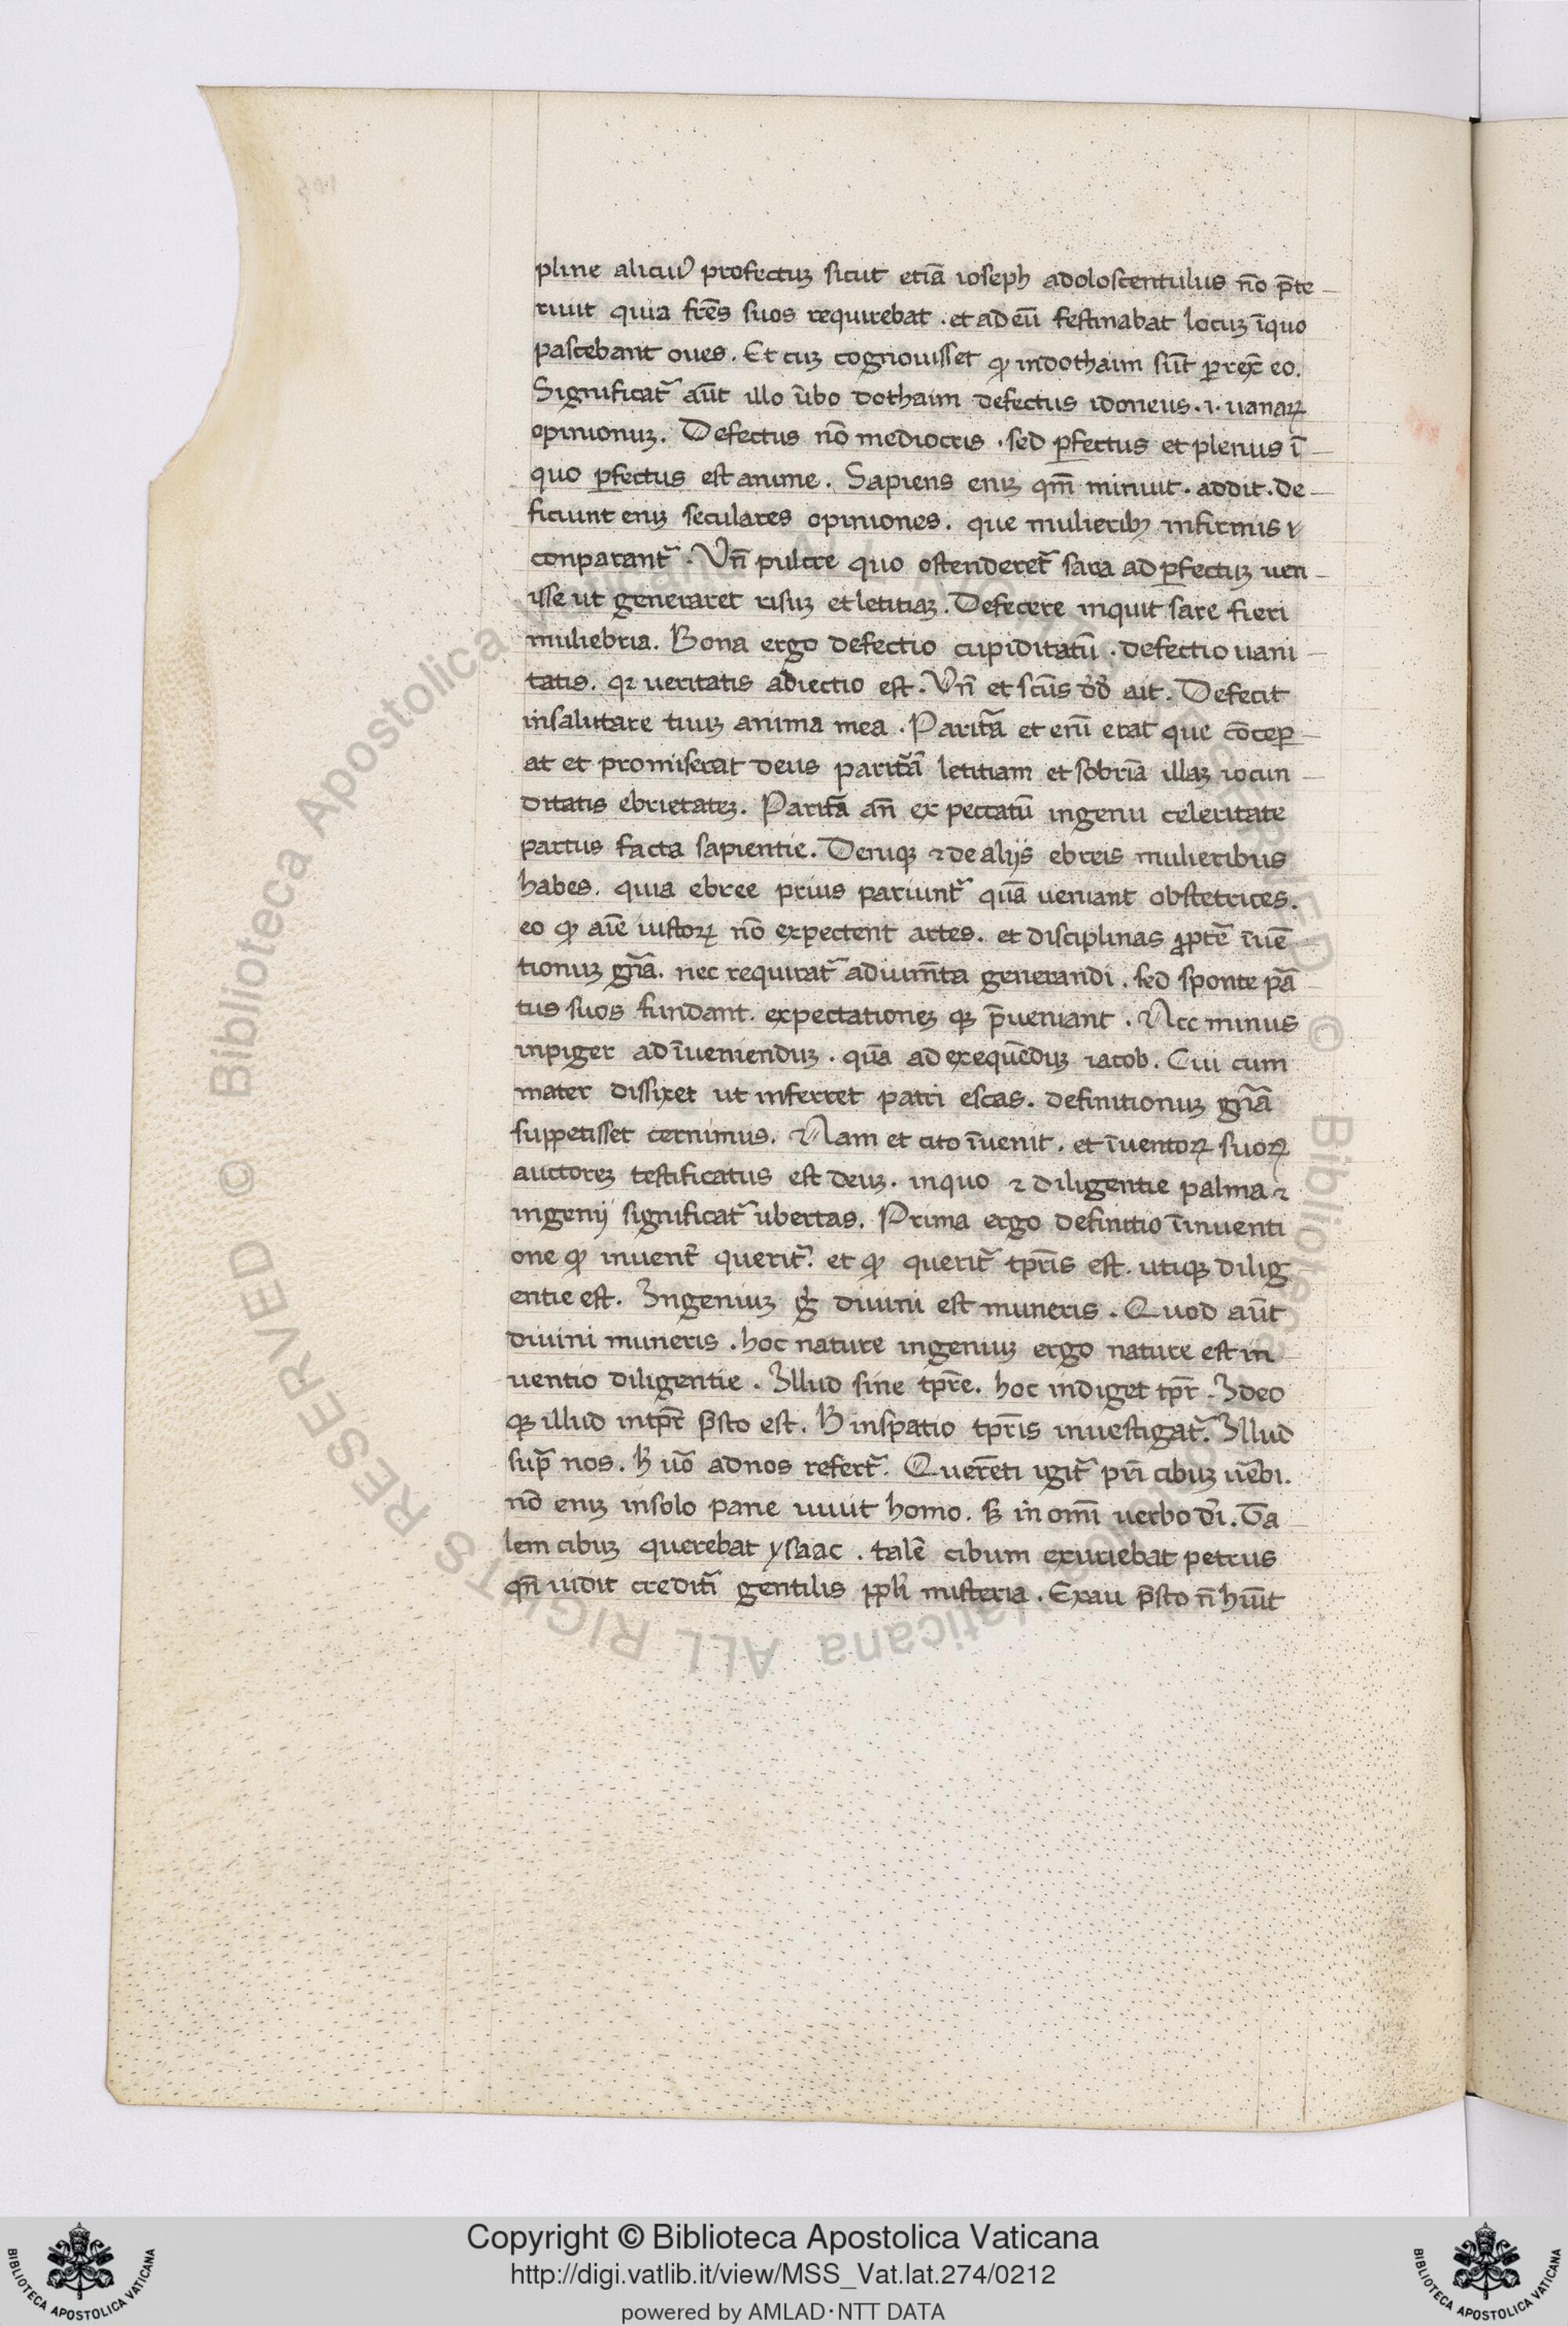 pline alicuiꝰ profectuꝫ sicut etiā ioseph adoloscentulus nō p̄te
riuit quia fr̄es suos requirebat . et ad eū festinabat locuꝫ ī quo
pascebant oues . Et cuꝫ cognouisset ꝙ in dothaim sūt ꝑrex̄ eo .
Significat᷑ aūt illo ūbo dothaim defectus idoneus . i . uanaꝝ
opinionuꝫ . Defectus nō mediocris . sed ꝑfectus et plenus ī
quo ꝑfectus est anime . Sapiens eniꝫ qm̄ minuit . addit . de
ficiunt eniꝫ seculares opiniones . que mulieribꝫ infirmis
conparant᷑ . Vn̄ pulcre quo ostenderet᷑ sara ad ꝑfectuꝫ uen
isse ut generaret risuꝫ et letitiaꝫ . Defecere inquit sare fieri
muliebria . Bona ergo defectio cupiditatū . defectio uani
tatis . qꝛ ueritatis adiectio est . Vn̄ et scūs dd̄ ait . Defecit
in salutare tuuꝫ anima mea . Parit᷑a et enī erat que cōceꝑ
at et promiserat deus parit᷑ā letitiam et sobriā illaꝫ iocun
ditatis ebrietateꝫ . Parit᷑a an̄ expeccatū ingenii celeritate
partus facta sapientie . Deniqꝫ ⁊ de alijs ebreis mulieribus
habes . quia ebree prius pariunt᷑ quā ueniant obstetrices .
eo ꝙ aīe iustoꝝ nō expectent artes . et disciplinas ꝓptē īuē
tionuꝫ gr̄a . nec requirat᷑ adium̄ta generandi . sed sponte pā
tus suos fundant . expectationeꝫ qꝫ p̄ueniant . Nec minus
inpiger ad īuenienduꝫ . quā ad exequēduꝫ iacob . Cui cum
mater dissixet ut inferret patri escas . definitionuꝫ gr̄a
suppetisset cernimus . Nam et cito īuenit . et īuentoꝝ suoꝝ
auctoreꝫ testificatus est deuꝫ . in quo ⁊ diligentie palma ⁊
ingenij significat᷑ ubertas . Prima ergo definitio īinuenti
one ꝙ inuent᷑ querit᷑ . et ꝙ querit᷑ tp̄ris est . utiqꝫ dilig
entie est . Ingeniuꝫ g̊ diuini est muneris . Quod aūt
diuini muneris . hoc nature ingeniuꝫ ergo nature est in
uentio diligentie . Illud sine tp̄re . hoc indiget tp̄r . Ideo
qꝫ illud in tp̄r p̄sto est . h̄ in spatio tp̄ris inuestigat᷑ . Illud
supᷓ nos . h̄ uō ad nos refert᷑ . Querēti igit᷑ pr̄i cibuꝫ u̅bi .
nō eniꝫ in solo pane uiuit homo . sꝫ in omī uerbo dī . Ta
lem cibuꝫ querebat ysaac . talē cibum exuriebat petrus
qn̄ uidit crediti᷑ gentilis ppl̄i misteria . Exau p̄sto n̄ hūit
Copyright © Biblioteca Apostolica Vaticana
http://digi.vatlib.it/view/MSS_Vat.lat.274/0212
powered by AMLAD·NTT DATA